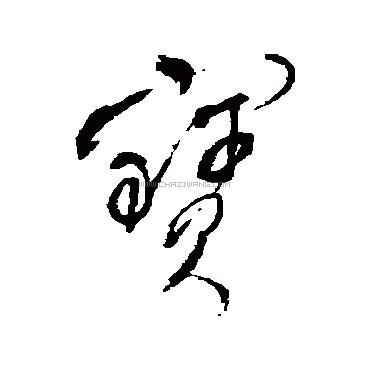 寶
WWW.CHAZIWANG.COM